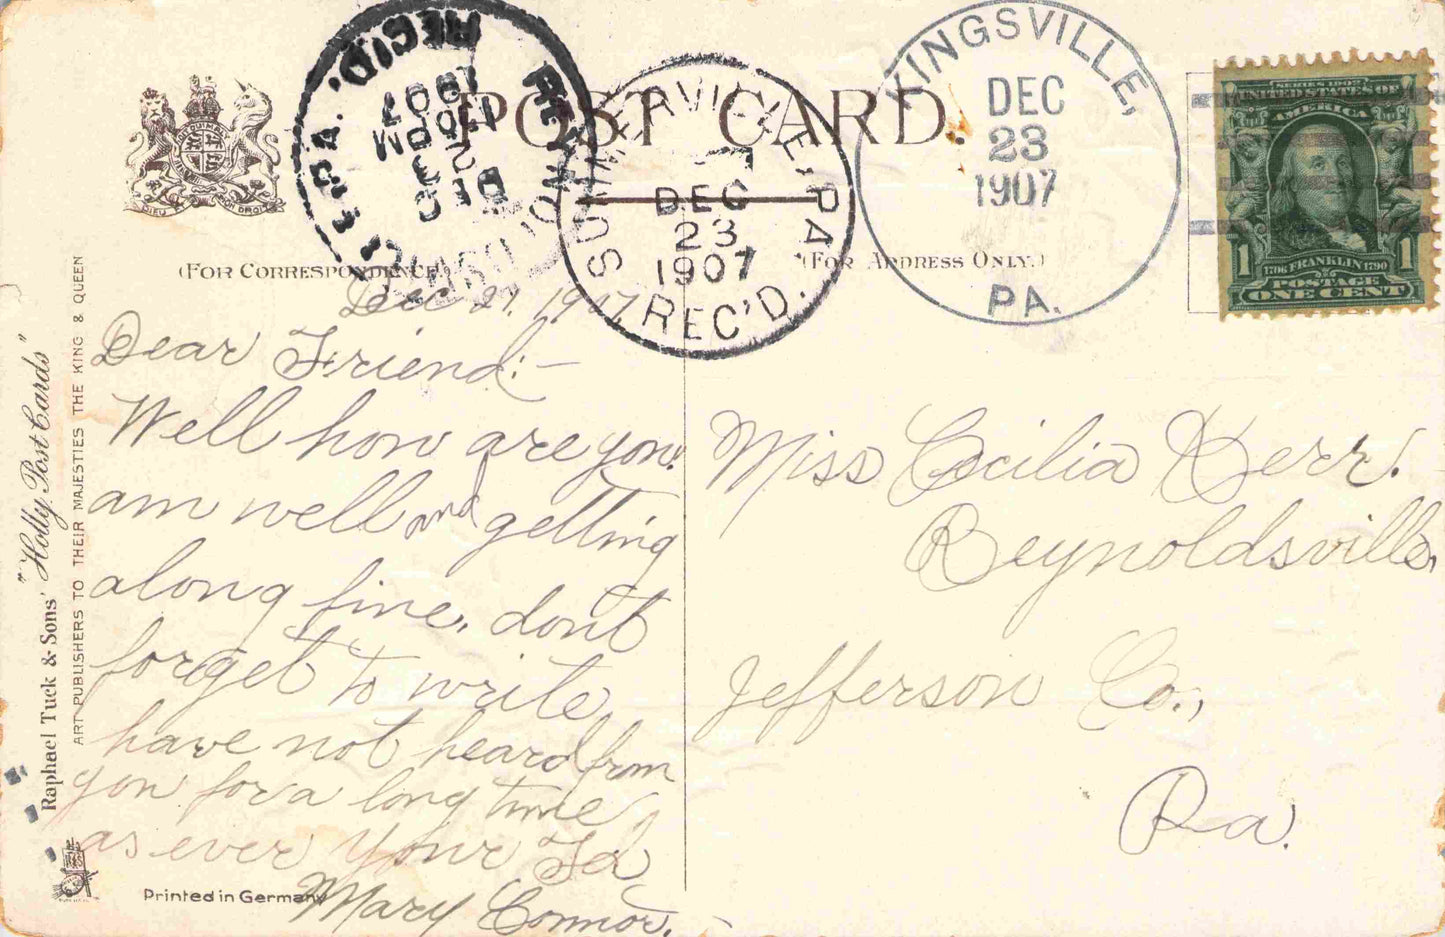 POST CARD.
(FOR CORRESPONDENCE.)
(FOR ADDRESS ONLY.)
REYNO
PA.
REC'D.
DEC
23
1907
SUMMERVILLE, PA.
DEC
23
1907
REC'D.
KINGSVILLE,
DEC
23
1907
PA.
SERIES 1902
UNITED STATES OF
AMERICA
1 1
1706 FRANKLIN 1790
POSTAGE
ONE CENT
DIEU ET MON DROIT
Raphael Tuck & Sons' "Holly Post Cards"
ART PUBLISHERS TO THEIR MAJESTIES THE KING & QUEEN
Printed in Germany
Dec 21, 1907,
Dear Friend:—
Well how are you.
am well and getting
along fine. dont
forget to write
have not heard from
you for a long time
as ever your Fd
Mary Connor.
Miss Cecilia Kerr.
Reynoldsville,
Jefferson Co.,
Pa.